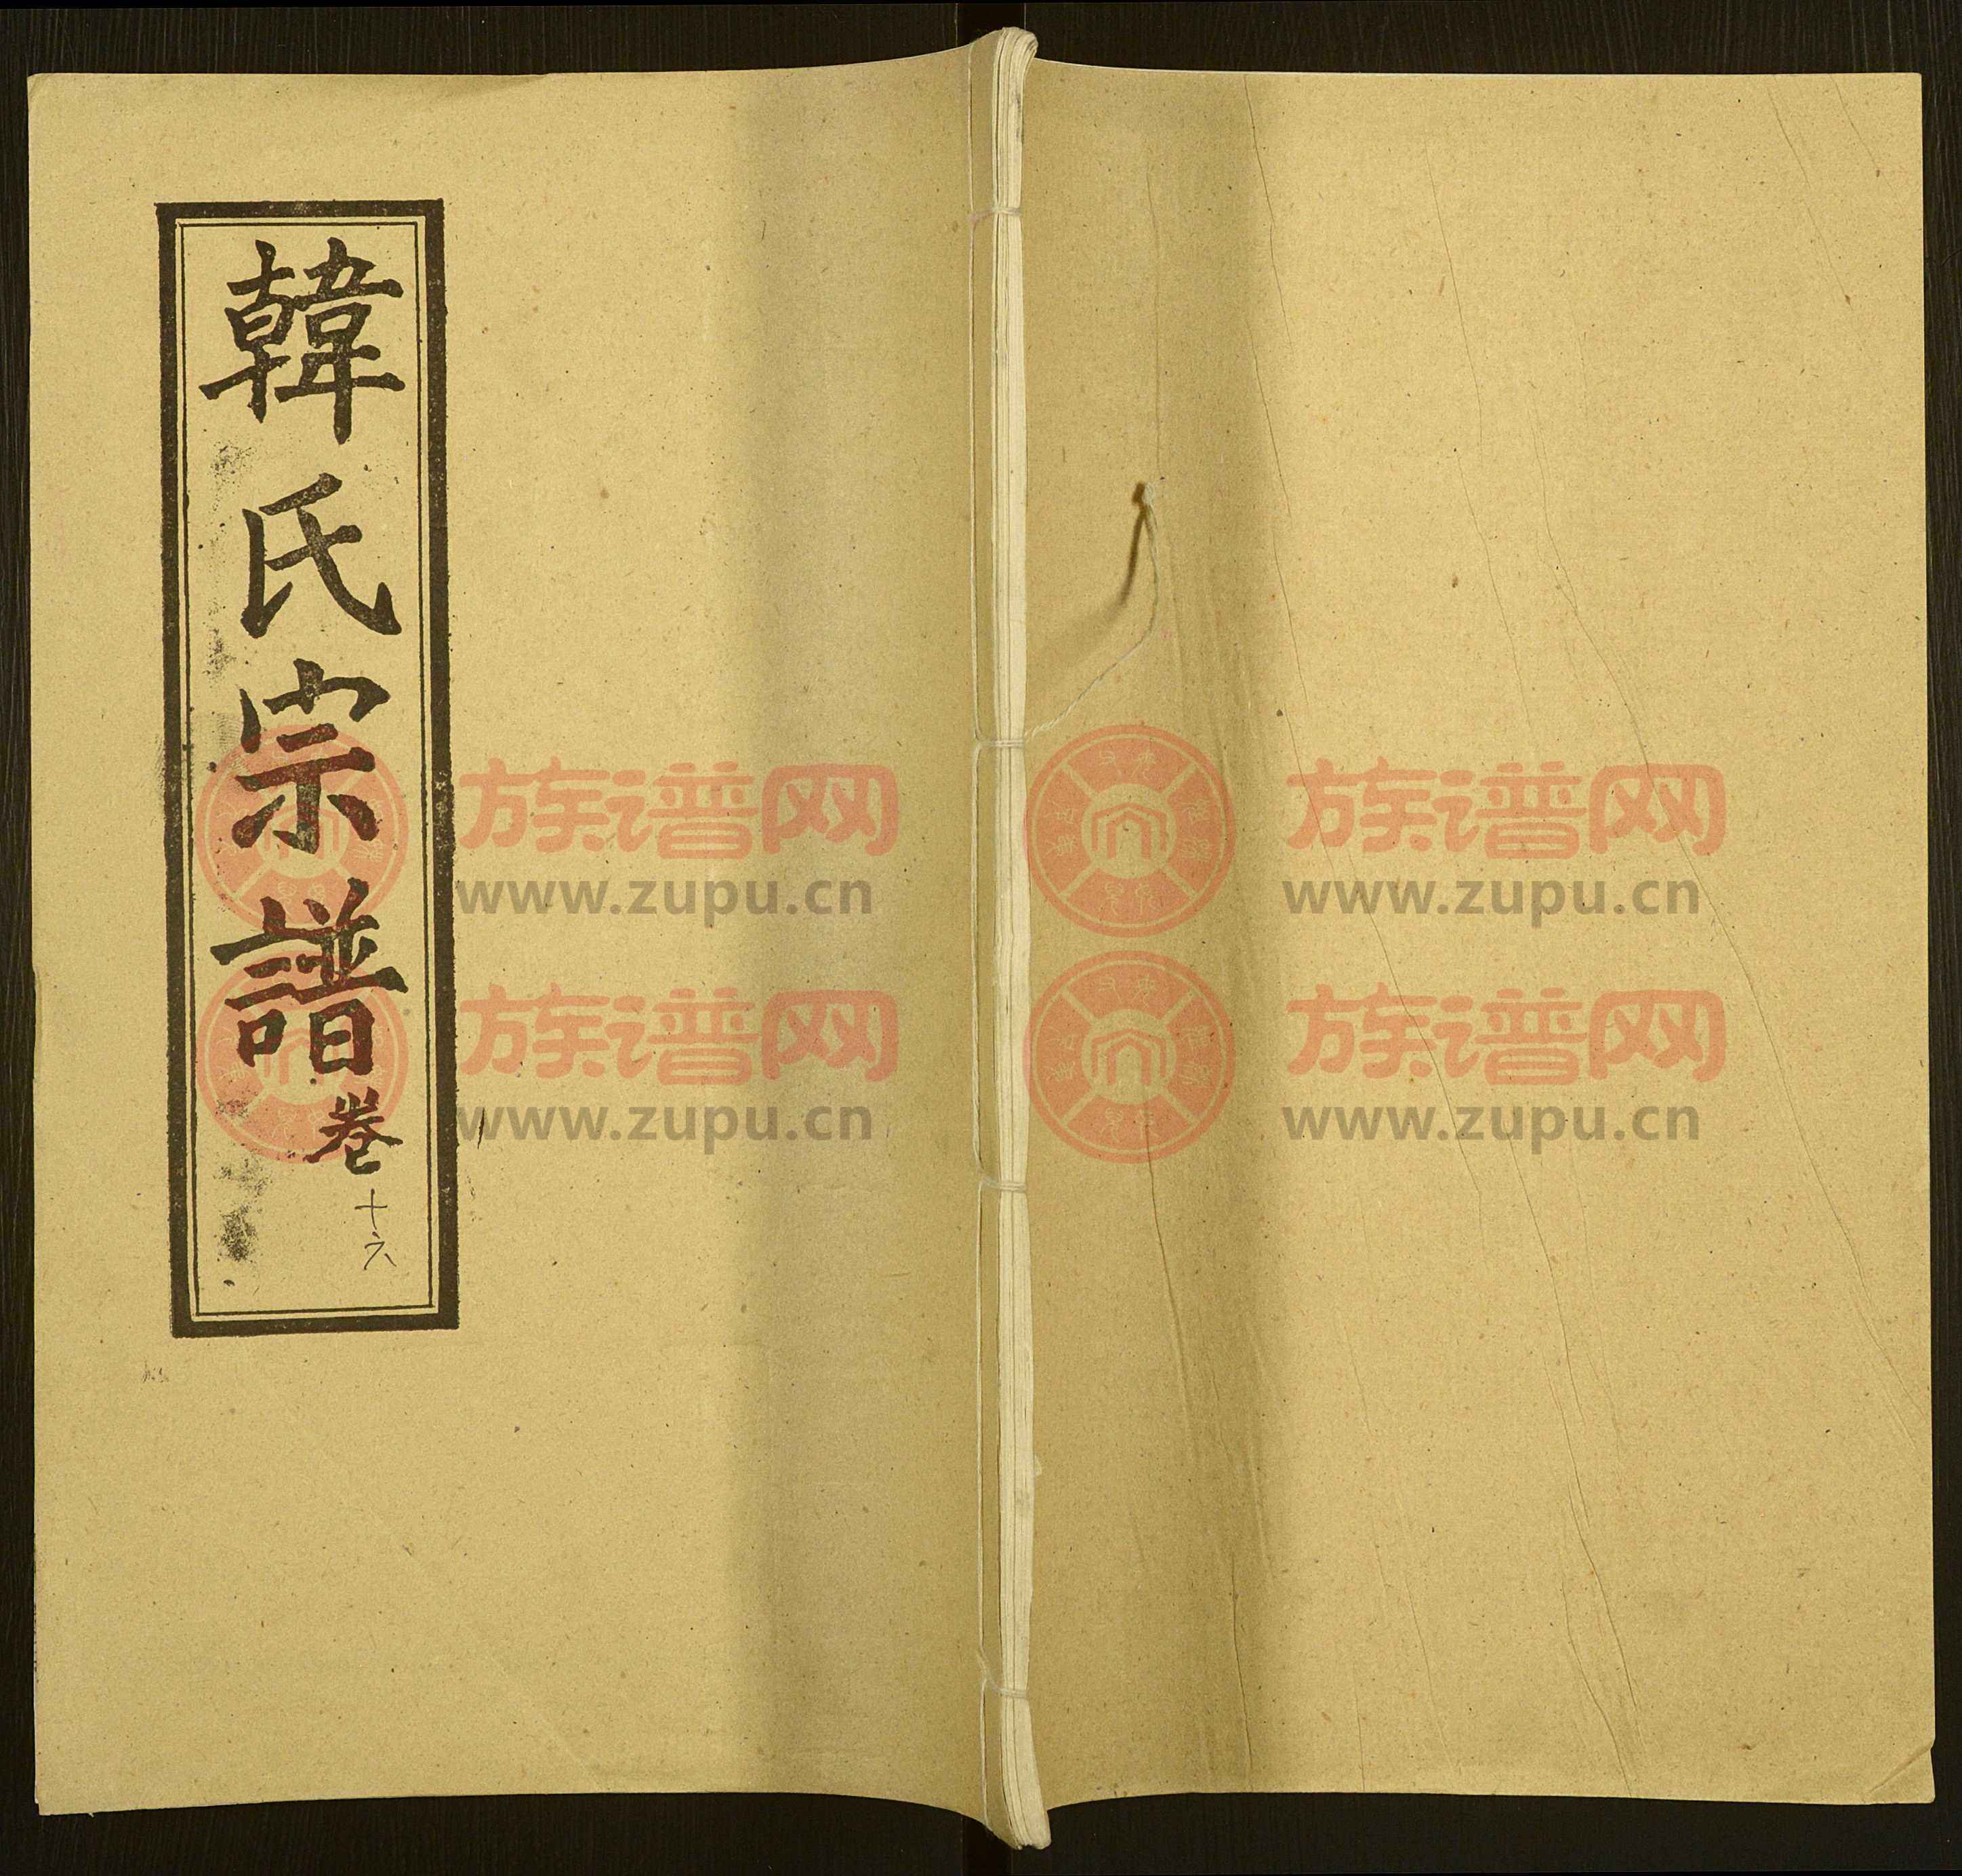 韓氏宗譜卷十六
族谱网 族谱网
www.zupu.cn www.zupu.cn
族谱网 族谱网
www.zupu.cn www.zupu.cn